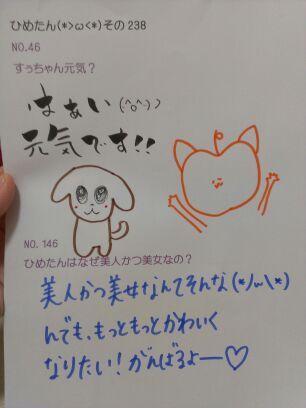 ひめたん(*>ω<*)その238
NO.46
すぅちゃん元気?
はぁい(^o^)ノ
元気です!!
NO.146
ひめたんはなぜ美人かつ美女なの?
美人かつ美女なんてそんな(*ノω\*)
んでも、もっともっとかわいく
なりたい!がんばるよー♡